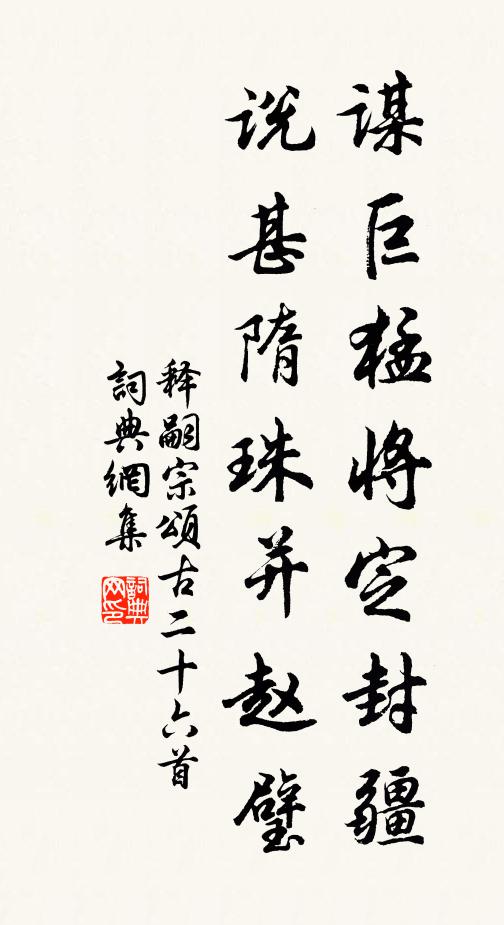 谋巨猛將定封疆
说甚隋珠并赵璧
释嗣宗頌古二十六首
詞典網集
詞典网印